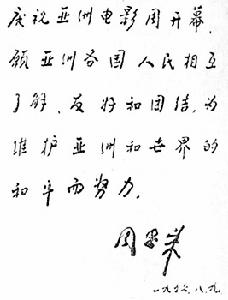 庆祝亚洲电影周开幕，
愿亚洲各国人民相互
了解、友好和团结，为
维护亚洲和世界的
和平而努力。
周恩来
一九五七.八.九.